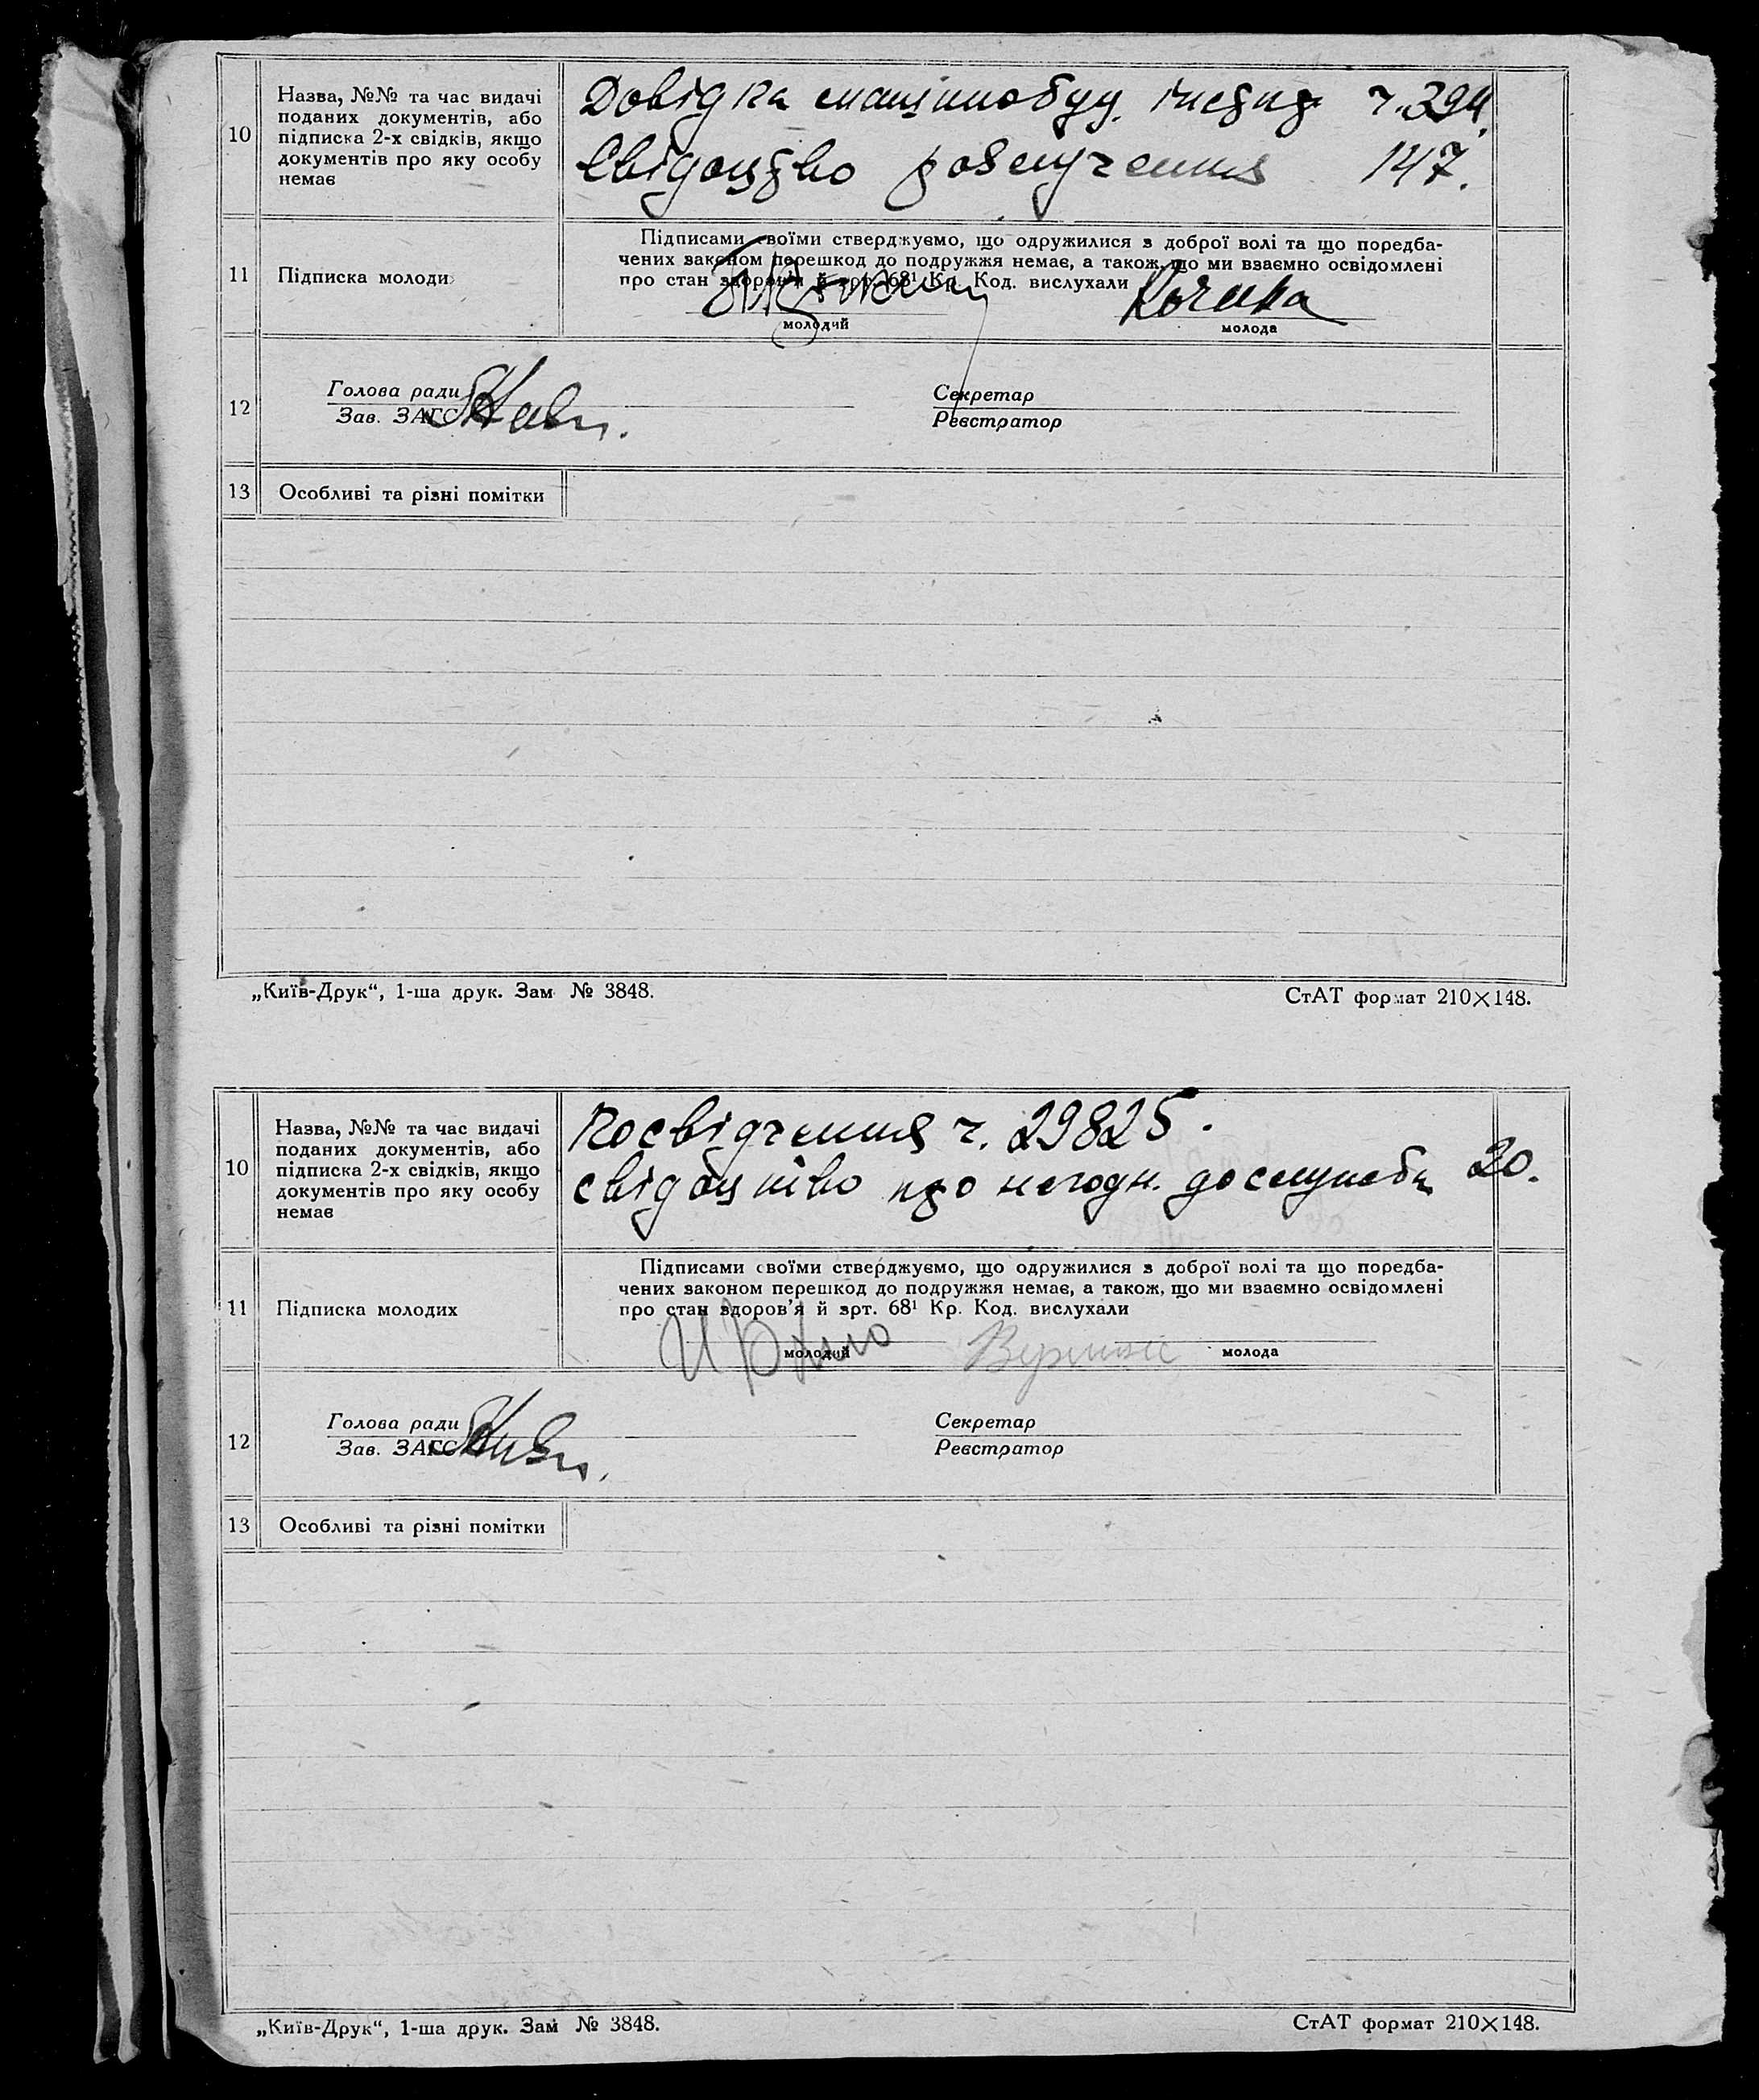 10
Назва, №№ та час видачі
поданих документів, або
підписка 2-х свідків, якщо
документів про яку особу
немає
Довідка ч. 394.
Свідоцтво розлучення 147.
11
Підписка молоди
Підписами своїми стверджуємо, що одружилися з доброї волі та що поредба-
чених законом перешкод до подружжя немає, а також, що ми взаємно освідомлені
про стан здоров'я й арт. 68¹ Кр. Код. вислухали
молодий
молода
12
Голова ради
Зав. ЗАГС
Секретар
Реєстратор
13
Особливі та різні помітки
„Київ-Друк“, 1-ша друк. Зам № 3848.
СтАТ формат 210×148.
10
Назва, №№ та час видачі
поданих документів, або
підписка 2-х свідків, якщо
документів про яку особу
немає
Посвідчення ч. 29825.
свідоцтво про негодн. до служби 20.
11
Підписка молодих
Підписами своїми стверджуємо, що одружилися з доброї волі та що поредба-
чених законом перешкод до подружжя немає, а також, що ми взаємно освідомлені
про стан здоров'я й арт. 68¹ Кр. Код. вислухали
молодий
молода
12
Голова ради
Зав. ЗАГС
Секретар
Реєстратор
13
Особливі та різні помітки
„Київ-Друк“, 1-ша друк. Зам № 3848.
СтАТ формат 210×148.